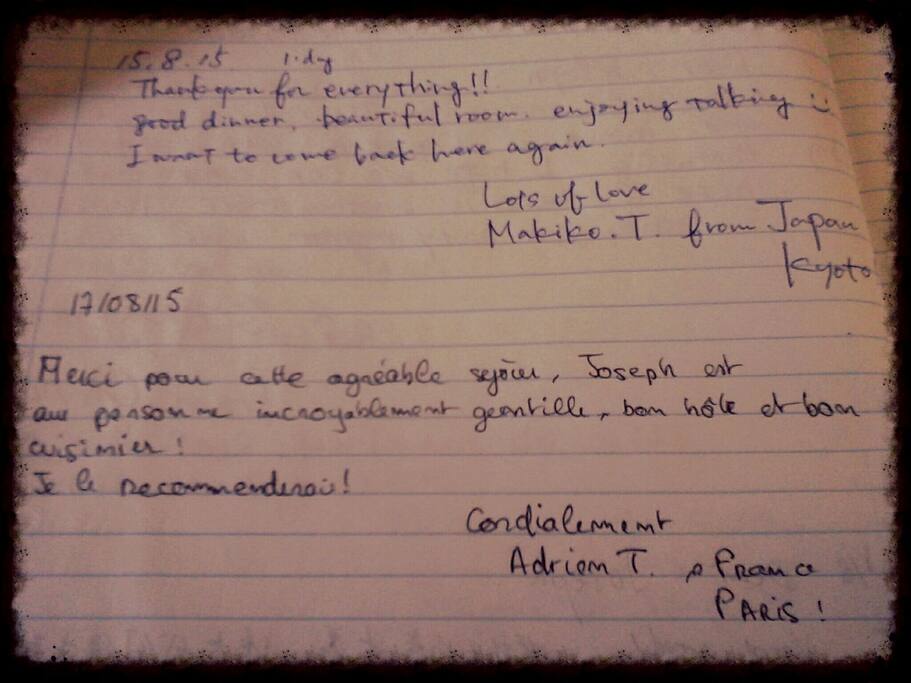 15.8.15 1.day
Thank you for everything!!
good dinner, beautiful room. enjoying talking :)
I want to come back here again.
Lots of love
Makiko.T. from Japan
Kyoto
17/08/15
Merci pour cette agréable séjour, Joseph est
une personne incroyablement gentille, bon hôte et bon
cuisinier !
Je le recommenderai!
Cordialement
Adrien T. France
PARIS !